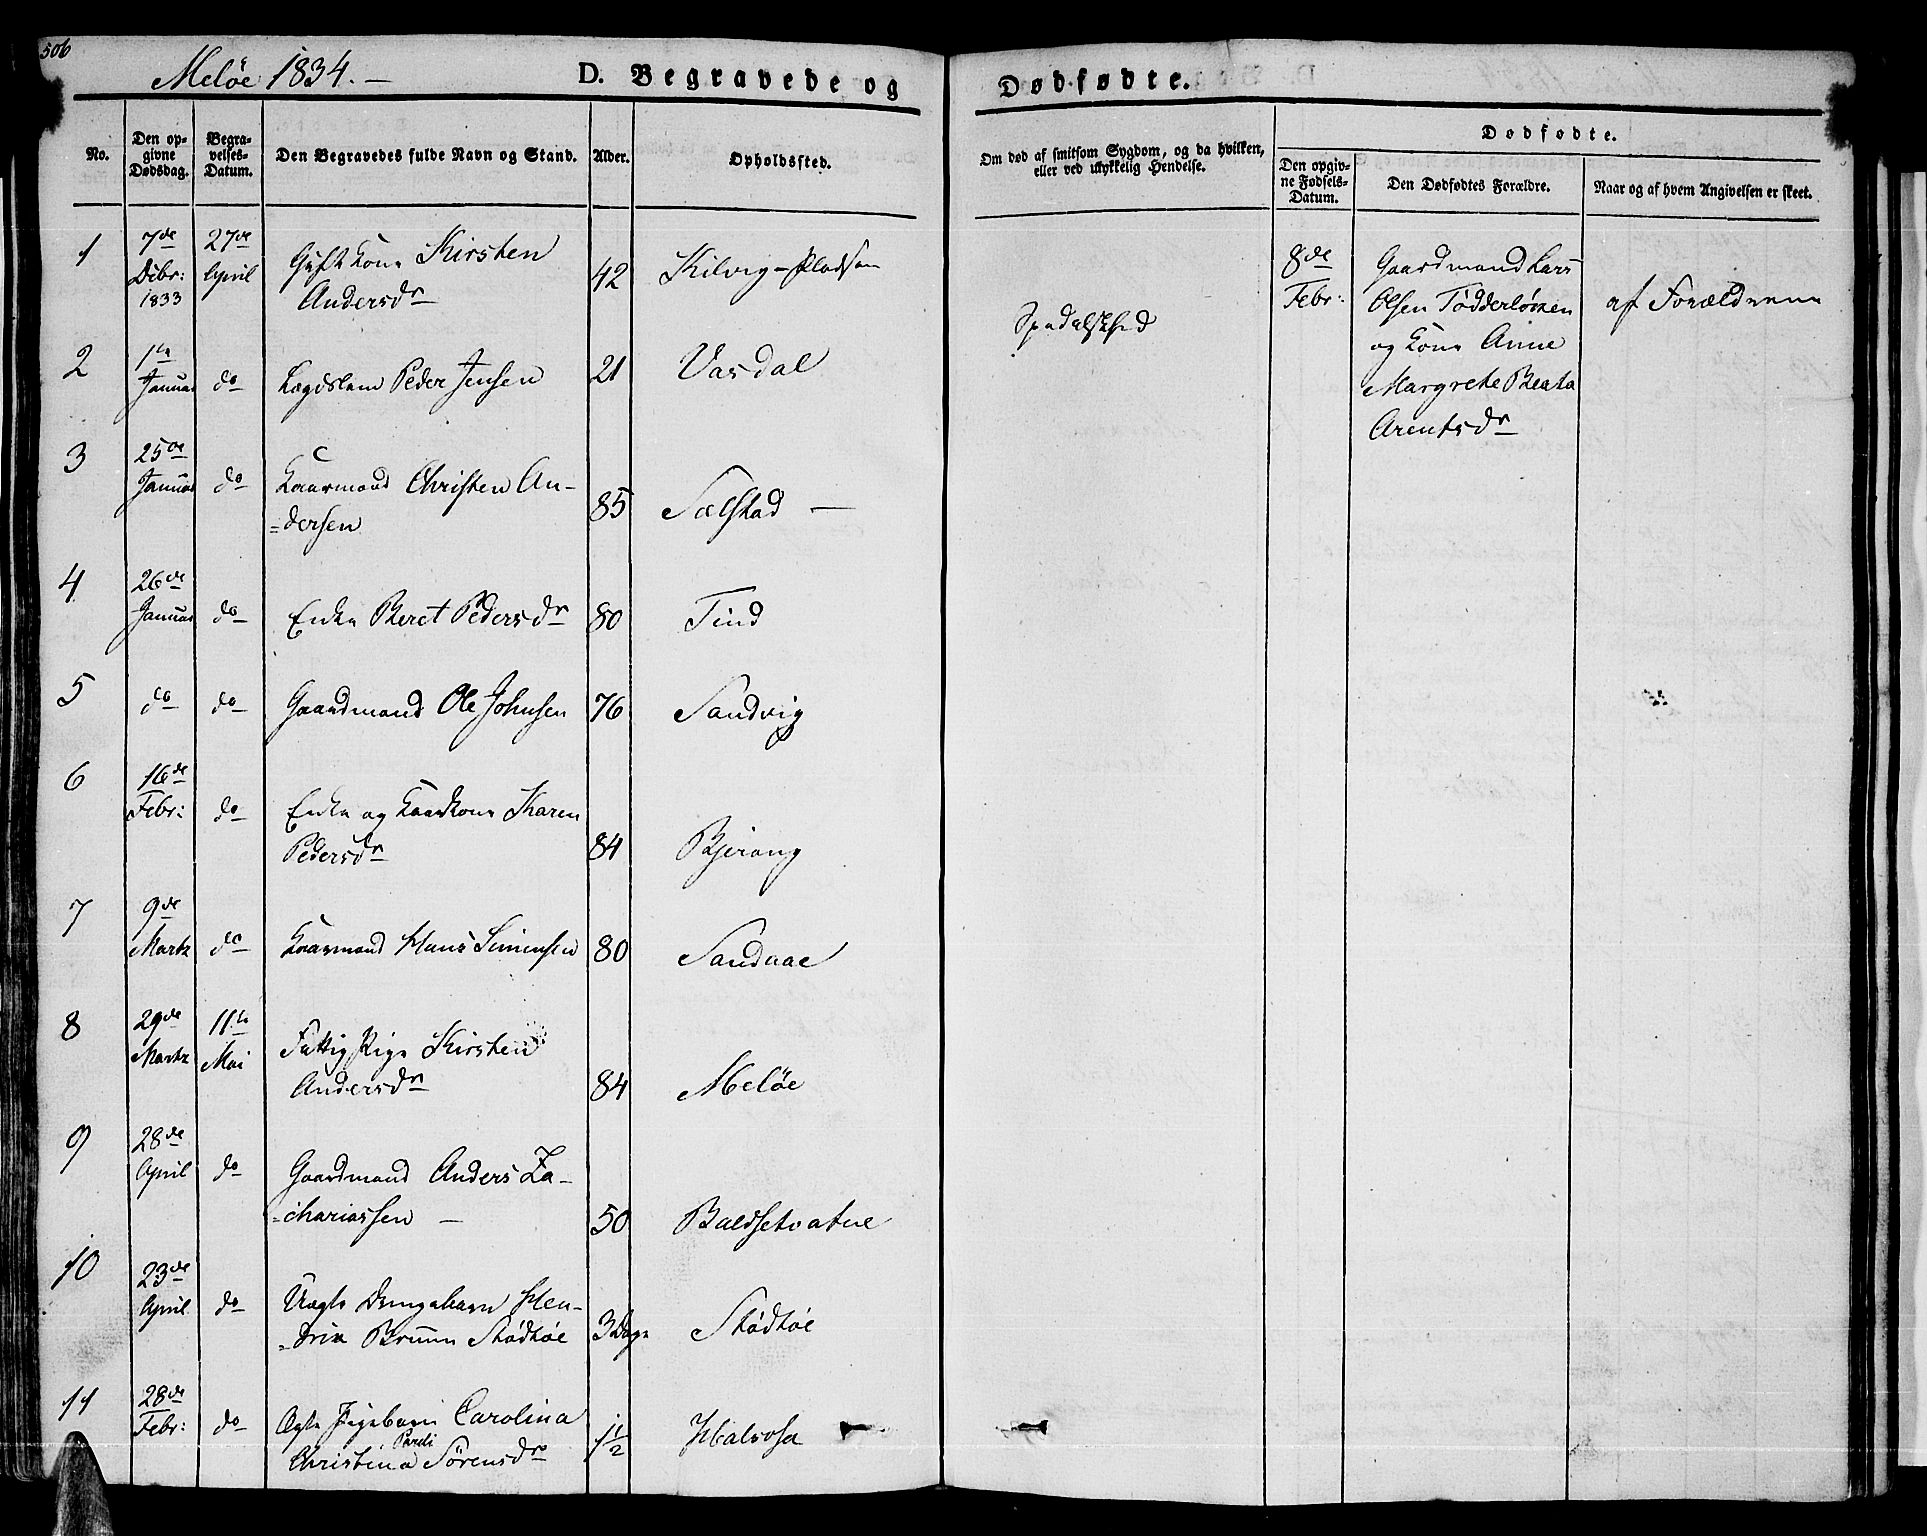 506
Meløe 1834. —
D. Begravede og Dødfødte.
No.
Den opgivne Dødsdag.
Begravelses-Datum.
Den Begravedes fulde Navn og Stand.
Alder.
Opholdssted.
Om død af smitsom Sygdom, og da hvilken, eller ved ulykkelig Hendelse.
Dødfødte.
Den opgivne Fødsels-Datum.
Den Dødfødtes Forældre.
Naar og af hvem Angivelsen er skeet.
1 7de Debr: 1833 27de April Gift Kone Kirsten
Andersdr 42 Kilvig-Pladsen
8de Febr: Gaardmand Lars
Olsen TödderlöKen
og Kone Anne
Margrethe Beata
Arentsdr
af Forældrene
2 1te Januar do Lægdslem Peder Jensen 21 Vasdal Spedalskhed
3 25de Januar do Kaarmand Christen An-
=dersen 85 Sælstad —
4 26de Januar do Enke Beret Pedersdr 80 Tind
5 do do Gaardmand Ole Johnsen 76 Sandvig
6 16de Febr: do Enke og Kaarkone Karen
Pedersdr 84 Bjerang
7 9de Marts do Kaarmand Hans Simensen 80 Sandaae
8 29de Marts 11te Mai Fattig Pige Kirsten
Andersdr 84 Meløe
9 28de April do Gaardmand Anders Za-
=chariassen — 50 Baldsetvatne
10 23de April do Uægte Drengebarn Hen-
=drik Bruun Stødtøe 3 Dage Stødtøe
11 28de Febr: do Ægte Pigebarn Carolina
Christina Pardi Sörensdr 1 1/2 Halsosa